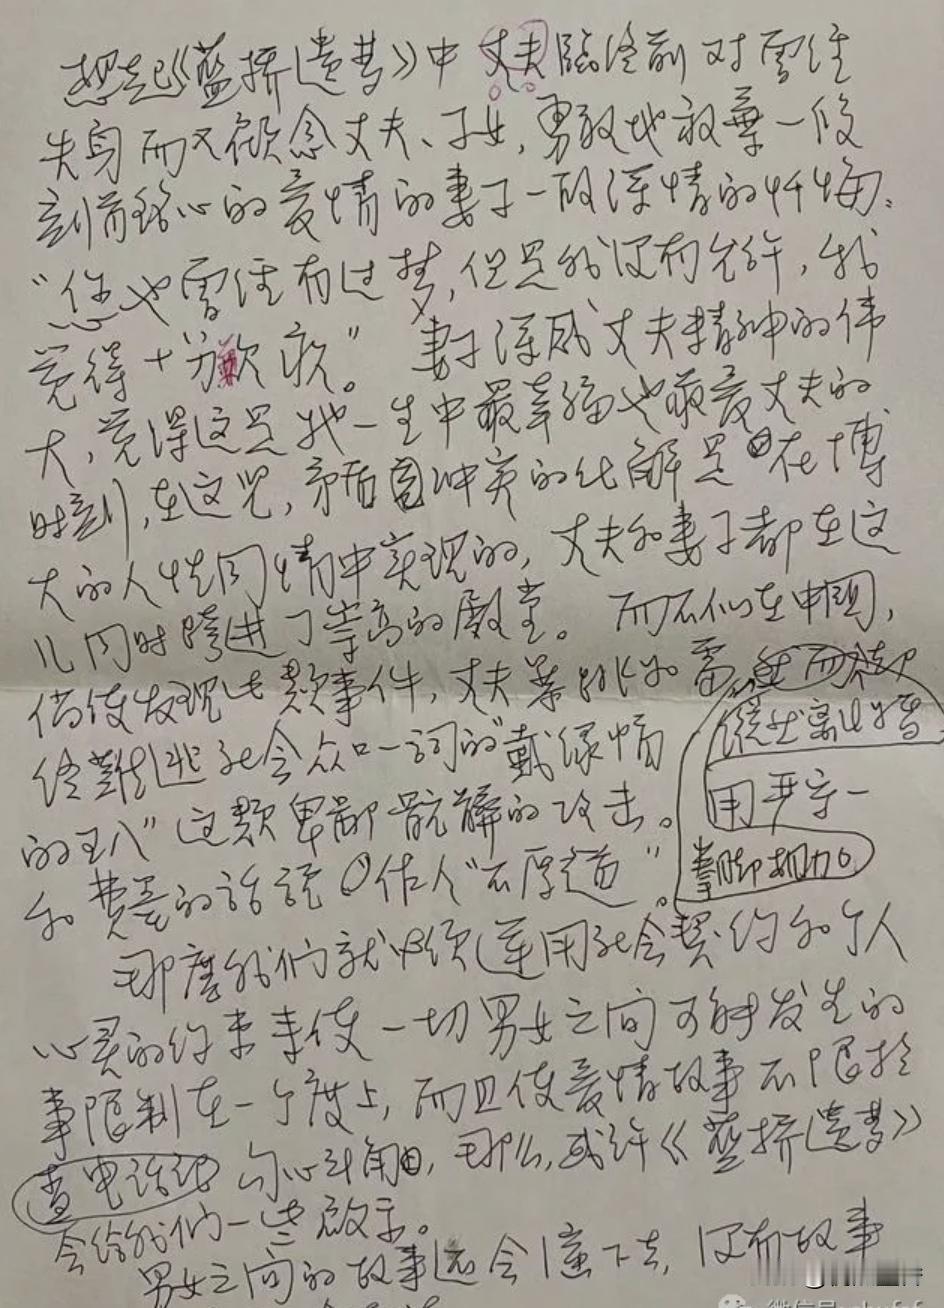 想起《蓝桥遗梦》中丈夫临终前对曾经
失身而又顾念丈夫、子女,勇敢地放弃一段
刻骨铭心的爱情的妻子一段深情的忏悔:
“您也曾经有过梦,但是我没有允许,我
觉得十分歉疚。”妻子深感丈夫精神的伟
大,觉得这是她一生中最幸福也最爱丈夫的
时刻,在这儿,矛盾冲突的化解是在博
大的人性同情中实现的,丈夫和妻子都在这
儿同时跨进了崇高的殿堂。而不似在中国,
倘使发现此类事件,丈夫暴跳如雷,
纵然离婚
终难逃社会众口一词的“戴绿帽
用严守一
的王八”这类卑鄙骯髒的攻击。
拳脚相加
和费墨的话语作人“不厚道”。
那麼我们就必须运用社会契约和个人
心灵的约束来使一切男女之间可能发生的
事限制在一个度上,而且使爱情故事不限於
查电话记 勾心斗角,那么,或许《蓝桥遗梦》
会给我们一些启示。
男女之间的故事还会演下去,没有故事